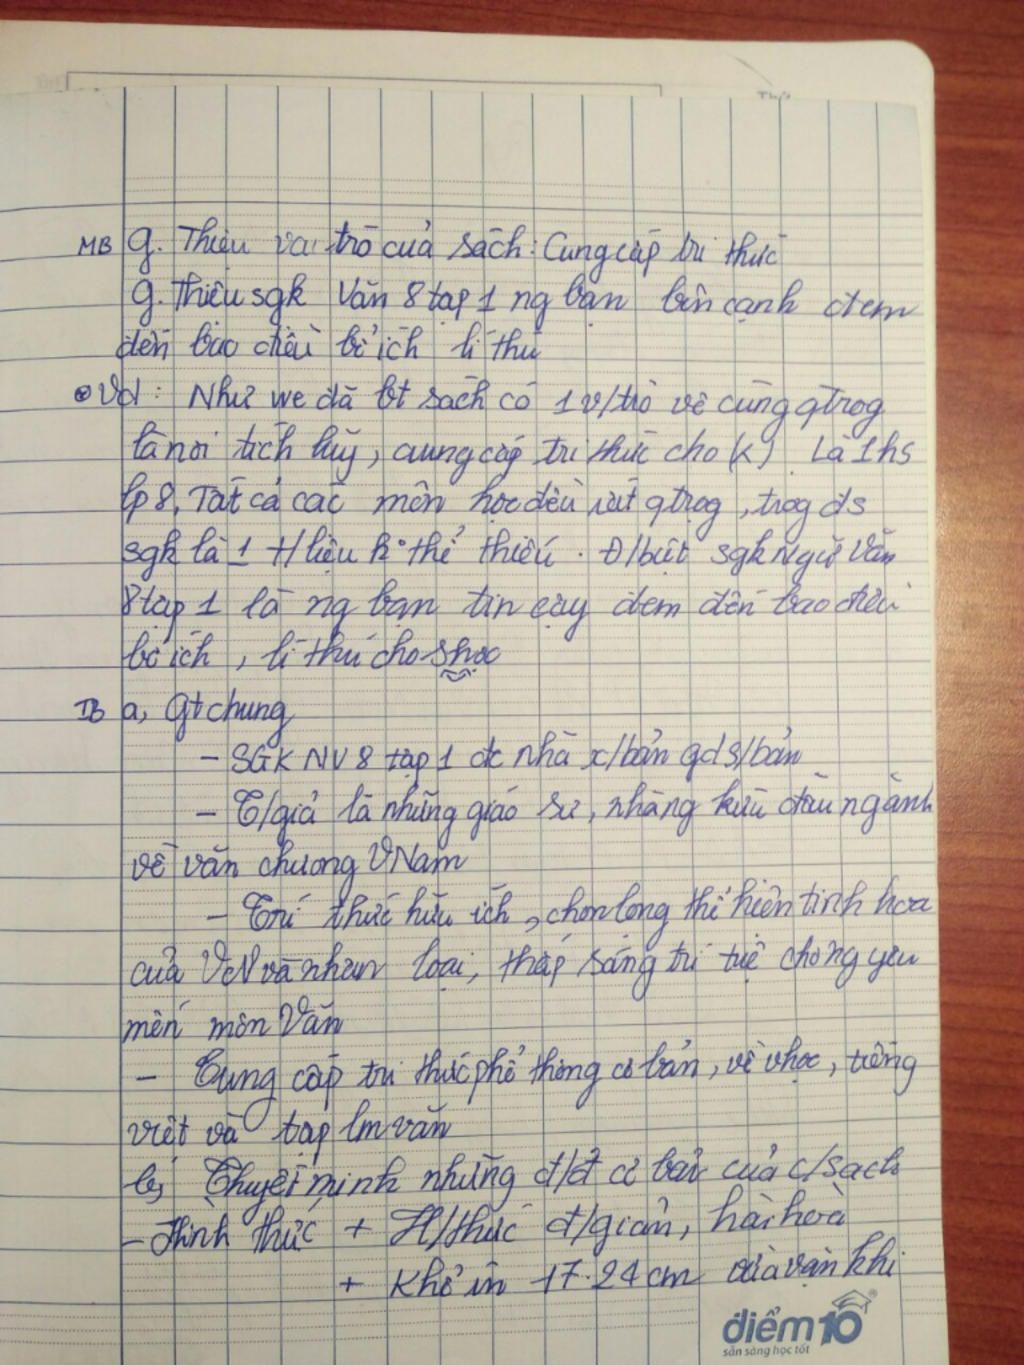 MB g. Thiệu vai trò của sách: Cung cấp tri thức
g. Thiệu sgk Văn 8 tập 1 ng bạn bên cạnh đem
đến bao điều bổ ích lí thú
Vd: Như we đã bt sách có 1 v/trò vô cùng qtrọg
là nơi tích lũy, cung cấp tri thức cho (k) Là 1 hs
lp 8, Tất cả các môn học đều rất qtrọg, trog ds
sgk là 1 t/liệu k° thể thiếu. Đ/biệt sgk Ngữ Văn
8 tập 1 là ng bạn tin cậy đem đến bao điều
bổ ích, lí thú cho shọc
TB a, Gt chung
- SGK NV 8 tập 1 đc nhà x/bản gd s/bản
- T/giả là những giáo sư, nhàng kứu đầu ngành
về văn chương VNam
- Trí thức hữu ích, chọn lọng thể hiện tinh hoa
của VN và nhân loại, thắp sáng trí tuệ chong yêu
mến môn Văn
- Cung cấp tri thức phổ thông cơ bản, về vhọc, tiếng
việt và tập lm văn
b, Thuyết minh những đ/đ cơ bản của c/sách
- Hình thức + H/thức đ/giản, hài hoà
+ Khổ in 17.24 cm vừa vặn khi
điểm 10
sẵn sàng học tốt